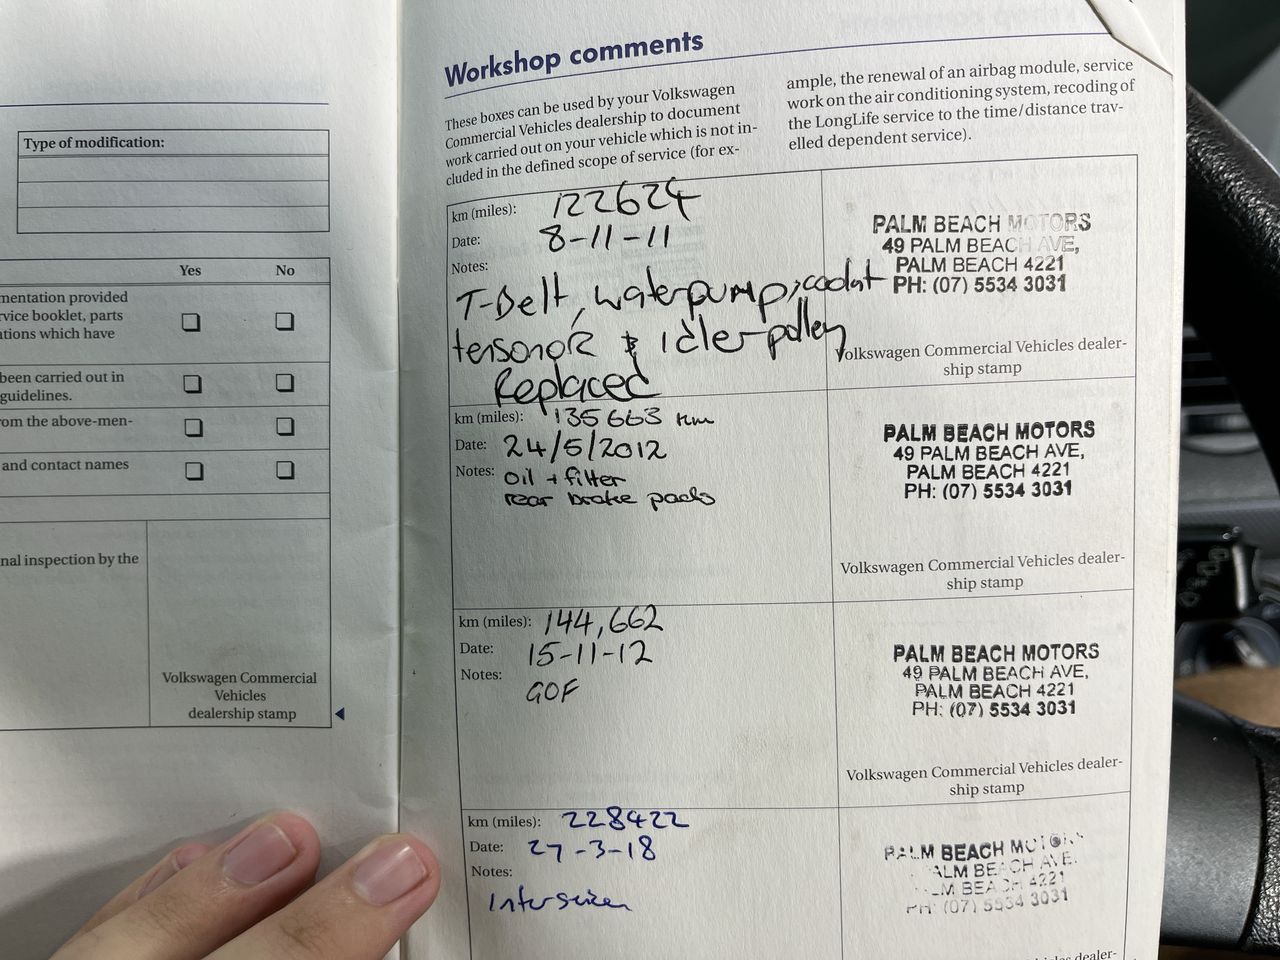 Type of modification:
Yes No
mentation provided
rvice booklet, parts
tions which have
been carried out in
guidelines.
om the above-men-
and contact names
nal inspection by the
Volkswagen Commercial
Vehicles
dealership stamp
Workshop comments
These boxes can be used by your Volkswagen
Commercial Vehicles dealership to document
work carried out on your vehicle which is not in-
cluded in the defined scope of service (for ex-
ample, the renewal of an airbag module, service
work on the air conditioning system, recoding of
the LongLife service to the time/distance trav-
elled dependent service).
km (miles): 122624
Date: 8-11-11
Notes:
T-Belt, waterpump, coolat
tensonor & idler-pulley
Replaced
PALM BEACH MOTORS
49 PALM BEACH AVE,
PALM BEACH 4221
PH: (07) 5534 3031
Volkswagen Commercial Vehicles dealer-
ship stamp
km (miles): 135663 km
Date: 24/5/2012
Notes: oil + filter
rear brake pads
PALM BEACH MOTORS
49 PALM BEACH AVE,
PALM BEACH 4221
PH: (07) 5534 3031
Volkswagen Commercial Vehicles dealer-
ship stamp
km (miles): 144,662
Date: 15-11-12
Notes:
GOF
PALM BEACH MOTORS
49 PALM BEACH AVE,
PALM BEACH 4221
PH: (07) 5534 3031
Volkswagen Commercial Vehicles dealer-
ship stamp
km (miles): 228422
Date: 27-3-18
Notes:
PALM BEACH MOTORS
PALM BEACH AVE.
PALM BEACH 4221
PH: (07) 5534 3031
dealer-